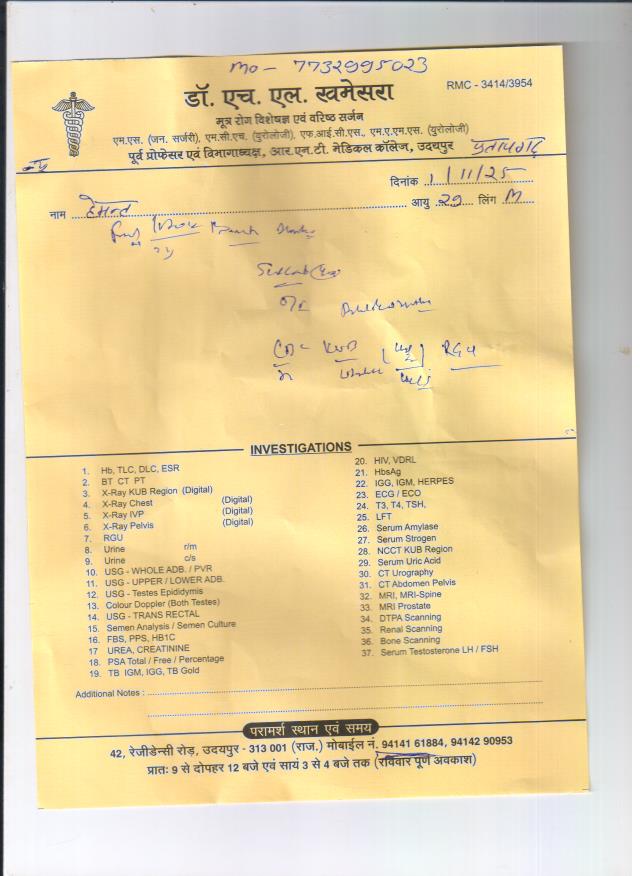 mo - 7732995023
RMC - 3414/3954
डॉ. एच. एल. खमेसरा
मूत्र रोग विशेषज्ञ एवं वरिष्ठ सर्जन
एम.एस. (जन. सर्जरी), एम.सी.एच. (युरोलोजी), एफ.आई.सी.एस., एम.ए.एम.एस. (युरोलोजी)
पूर्व प्रोफेसर एवं विभागाध्यक्ष, आर.एन.टी. मेडिकल कॉलेज, उदयपुर प्रतापगढ़
दिनांक 1/11/25
नाम हेमन्त आयु 29 लिंग M
INVESTIGATIONS
1. Hb, TLC, DLC, ESR
2. BT CT PT
3. X-Ray KUB Region (Digital)
4. X-Ray Chest (Digital)
5. X-Ray IVP (Digital)
6. X-Ray Pelvis (Digital)
7. RGU
8. Urine r/m
9. Urine c/s
10. USG - WHOLE ADB. / PVR
11. USG - UPPER / LOWER ADB.
12. USG - Testes Epididymis
13. Colour Doppler (Both Testes)
14. USG - TRANS RECTAL
15. Semen Analysis / Semen Culture
16. FBS, PPS, HB1C
17 UREA, CREATININE
18. PSA Total / Free / Percentage
19. TB IGM, IGG, TB Gold
20. HIV, VDRL
21. HbsAg
22. IGG, IGM, HERPES
23. ECG / ECO
24. T3, T4, TSH,
25. LFT
26. Serum Amylase
27. Serum Strogen
28. NCCT KUB Region
29. Serum Uric Acid
30. CT Urography
31. CT Abdomen Pelvis
32. MRI, MRI-Spine
33. MRI Prostate
34. DTPA Scanning
35. Renal Scanning
36. Bone Scanning
37. Serum Testosterone LH / FSH
Additional Notes :
परामर्श स्थान एवं समय
42, रेजीडेन्सी रोड़, उदयपुर - 313 001 (राज.) मोबाईल नं. 94141 61884, 94142 90953
प्रातः 9 से दोपहर 12 बजे एवं सायं 3 से 4 बजे तक (रविवार पूर्ण अवकाश)